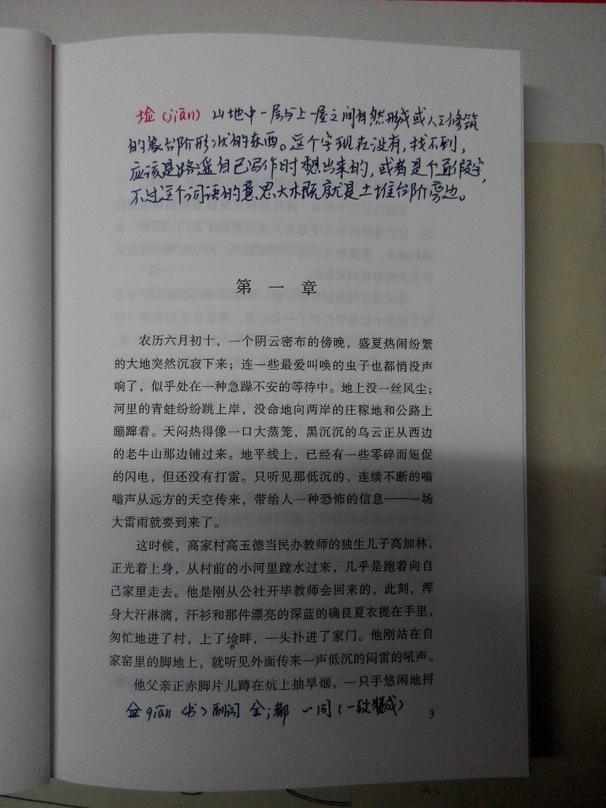 垴(jiān) 山地中一层与上一层之间自然形成或人工修筑
的象台阶形状的东西。这个字现在没有,找不到,
应该是路遥自己写作时想出来的,或者是个形段字,
不过这个词语的意思大概就是土堆台阶旁边。
第一章
农历六月初十，一个阴云密布的傍晚，盛夏热闹纷繁
的大地突然沉寂下来；连一些最爱叫唤的虫子也都悄没声
响了，似乎处在一种急躁不安的等待中。地上没一丝风尘；
河里的青蛙纷纷跳上岸，没命地向两岸的庄稼地和公路上
蹦蹿着。天闷热得像一口大蒸笼，黑沉沉的乌云正从西边
的老牛山那边铺过来。地平线上，已经有一些零碎而短促
的闪电，但还没有打雷。只听见那低沉的、连续不断的嗡
嗡声从远方的天空传来，带给人一种恐怖的信息——一场
大雷雨就要到来了。
这时候，高家村高玉德当民办教师的独生儿子高加林，
正光着上身，从村前的小河里蹚水过来，几乎是跑着向自
己家里走去。他是刚从公社开毕教师会回来的，此刻，浑
身大汗淋漓，汗衫和那件漂亮的深蓝的确良夏衣提在手里，
匆忙地进了村，上了硷畔，一头扑进了家门。他刚站在自
家窑里的脚地上，就听见外面传来一声低沉的闷雷的吼声。
他父亲正赤脚片儿蹲在炕上抽旱烟，一只手悠闲地捋
佥 qiān〈书〉副词 全；都 ～同(一致赞成)
3